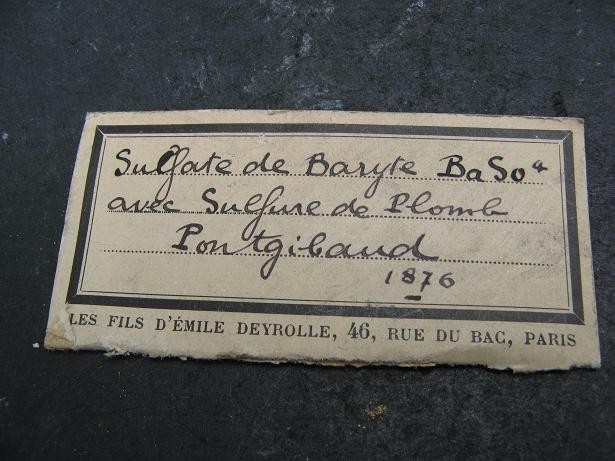 Sulfate de Baryte BaSo⁴
avec Sulfure de Plomb
Pontgibaud
1876
LES FILS D'ÉMILE DEYROLLE, 46, RUE DU BAC, PARIS